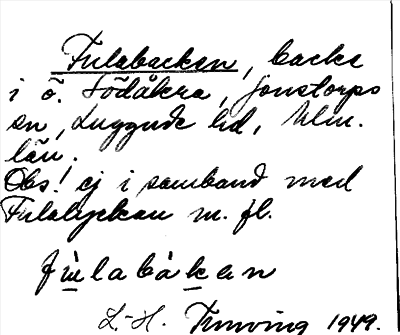 Fulabacken, backe
i ö. Södåkra, Jonstorps
sn, Luggude hd, Mlm.
län.
Obs! ej i samband med
Fulalyckan m. fl.
fùlabákan
L.-H. 1949.